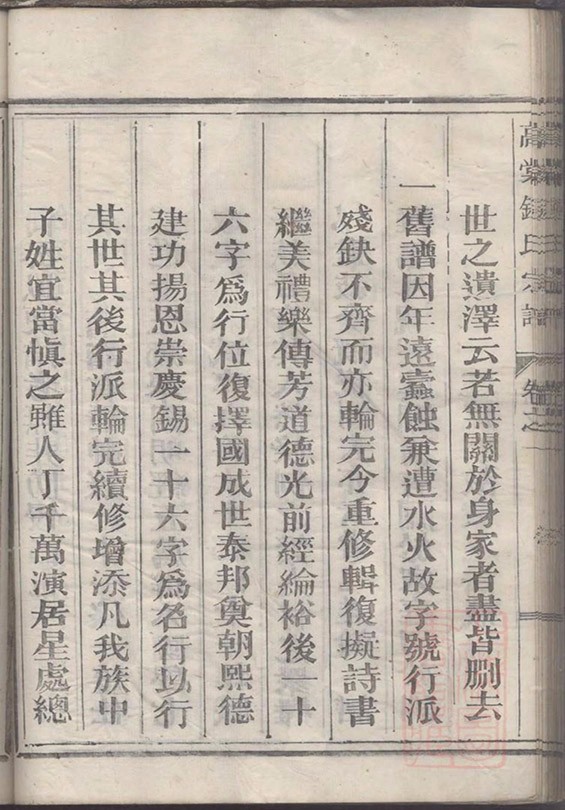 世之遺澤云若無關於身家者盡皆刪去
一舊譜因年遠蠹蝕兼遭水火故字號行派
殘缺不齊而亦輪完今重修輯復擬詩書
繼美禮樂傳芳道德光前經綸裕後一十
六字爲行位復擇國成世泰邦奠朝熙德
建功揚恩崇慶錫一十六字爲名行以行
其世其後行派輪完續修增添凡我族中
子姓宜當愼之雖人丁千萬演居星處總
氏宗譜
卷之